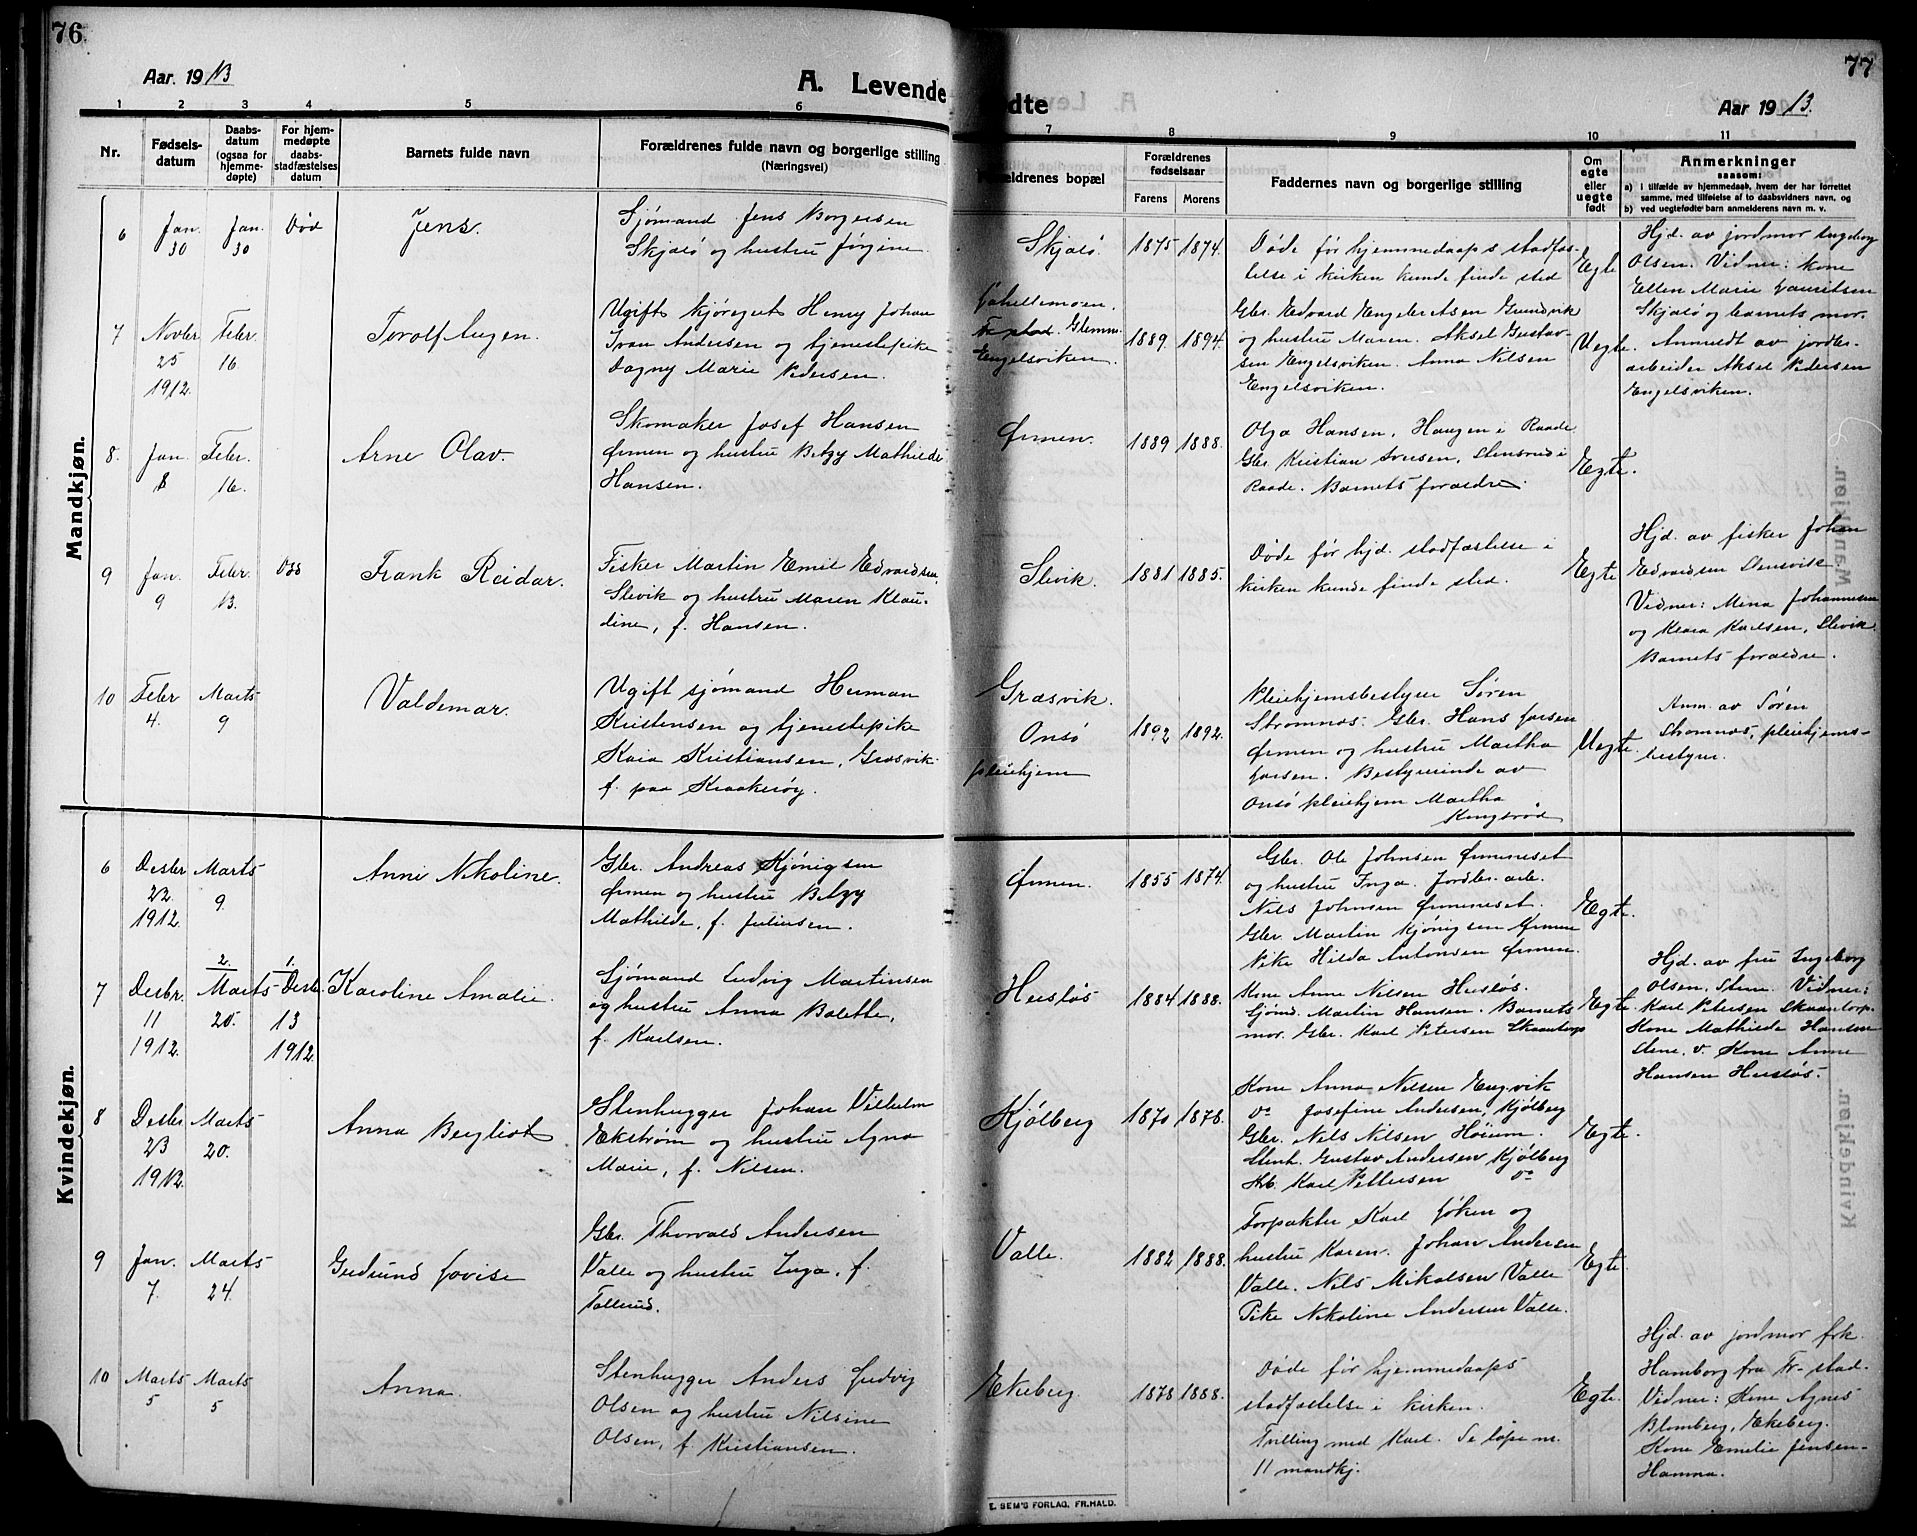 76
77
Aar. 1913
A. Levende
dte
Aar 1913.
1 2 3 4 5 6 7 8 9 10 11
Nr.
Fødsels-
datum
Daabs-
datum
(ogsaa for
hjemme-
døpte)
For hjem-
medøpte
daabs-
stadfæstelses
datum
Barnets fulde navn
Forældrenes fulde navn og borgerlige stilling
(Næringsvei)
ældrenes bopæl
Forældrenes
fødselsaar
Farens Morens
Faddernes navn og borgerlige stilling
Om
egte
eller
uegte
født
Anmerkninger
saasom:
a) i tilfælde av hjemmedaab, hvem der har forrettet
samme, med tilføielse af to daabsvidners navn, og
b) ved uegtefødte barn anmelderens navn m. v.
Mandkjøn.
6
Jan.
30
Jan.
30
Død
Jens.
Sjømand Jens Borgersen
Skjælø og hustru Jørgine
Skjælø.
1875 1874.
Døde før hjemmedaaps stadfæs-
telse i kirken kunde finde sted
Egte
Hjd. av jordmor Ingeborg
Olsen. Vidner: kone
Ellen Marie Lauritsen
Skjælø og barnets mor.
7
Novbr
25
1912.
Febr.
16
Torolf Eugen.
Ugift kjøregut Henry Johan
Ivan Andersen og tjenestepike
Dagny Marie Pedersen.
Fr.stad. Glemm.
Engelsviken.
1889. 1894.
Gbr. Edvard Engebretsen Grundvik
og hustru Maren. Aksel Gustav-
sen Engelsviken. Anna Nilsen
Engelsviken.
Uegte.
Anmeldt av jordbr.
arbeider Aksel Pedersen
Engelsviken.
8.
Jan.
8
Febr.
16.
Arne Olav.
Skomaker Josef Hansen
Ørmen og hustru Betzy Mathilde
Hansen.
Ørmen.
1889 1888.
Olga Hansen, Haugen i Raade
Gbr. Kristian Iversen, Stensrud i
Raade. Barnets forældre.
Egte.
9
Jan.
9
Febr.
13.
Død
Frank Reidar.
Fisker Martin Emil Edvardsen
Slevik og hustru Maren Klau-
dine, f. Hansen.
Slevik.
1881 1885.
Døde før hjd. stadfæstelse i
kirken kunde finde sted.
Egte
Hjd. av fisker Johan
Edvardsen Stensvik.
Vidner: Mina Johannesen
og Klara Karlsen, Slevik.
Barnets forældre.
10
Febr
4.
Marts
9
Valdemar.
Ugift sjømand Herman
Kristensen og tjenestepike
Kaia Kristiansen, Græsvik.
f. paa Kraakerøy.
Græsvik.
Onsø
pleiehjem
1892 1892.
Pleiehjemsbestyrer Søren
Strømnæs. Gbr. Hans Larsen
Ørmen og hustru Martha
Larsen. Bestyrerinde av
Onsø pleiehjem Martha
Kongsrød
Uegte.
Anm. av Søren
Strømnæs, pleiehjems-
bestyrer.
Kvindekjøn.
6
Desbr
22.
1912.
Marts
9.
Anni Nikoline.
Gbr. Andreas Kjønigsen
Ørmen og hustru Betzy
Mathilde, f. Juliusen.
Ørmen.
1855 1874.
Gbr. Ole Johnsen Ørmeneset
og hustru Inga. Jordbr. arb.
Nils Johnsen Ørmeneset.
Gbr. Martin Kjønigsen Ørmen
Pike Hilda Antonsen Ørmen.
Egte.
7
Desbr.
11
1912.
2.
Marts
20.
1.
Desbr.
13
1912.
Karoline Amalie.
Sjømand Ludvig Martinsen
og hustru Anna Bolette,
f. Karlsen.
Husløs
1884 1888.
Kone Anne Nilsen Husløs.
Sjømd. Martin Hansen. Barnets
mor. Gbr. Karl Petersen Skaantorp
Egte.
Hjd. av fru Ingeborg
Olsen, Stene. Vidner:
Karl Petersen Skaantorp.
Kone Mathilde Hansen
Stene. v. Kone Anne
Hansen Husløs.
8
Desbr
23
1912.
Marts
20.
Anna Bergliot
Stenhugger Johan Vilhelm
Ekstrøm og hustru Agna
Marie, f. Nilsen.
Kjølberg
1870 1878.
Kone Anna Nilsen Engvik
Do Josefine Andersen, Kjølberg
Gbr. Nils Nilsen Høium.
Stenh. Gustav Andersen Kjølberg
Karl Pettersen Do
Egte.
9
Jan.
7.
Marts
24.
Gudrund Lovise
Gbr. Thorvald Andersen
Valle og hustru Inga, f.
Tollerud.
Valle.
1882 1888.
Forpakter Karl Løken og
hustru Karen. Johan Andersen
Valle. Nils Mikalsen Valle
Pike Nikoline Andersen Valle.
Egte.
10
Marts
5
Marts
5
Anna.
Stenhugger Anders Ludvig
Olsen og hustru Nilsine
Olsen, f. Kristiansen.
Ekeberg.
1878 1888.
Døde før hjemmedaaps
stadfæstelse i kirken.
Tvilling med Karl. Se løpe n.
11 mandkj.
Egte.
Hjd. av jordmor frk.
Hamborg fra Fr-stad.
Vidner: Kone Agnes
Blomberg, Ekeberg.
Kone Emelie Jensen-
Hamna.
E. SEM'S FORLAG, FR.HALD.